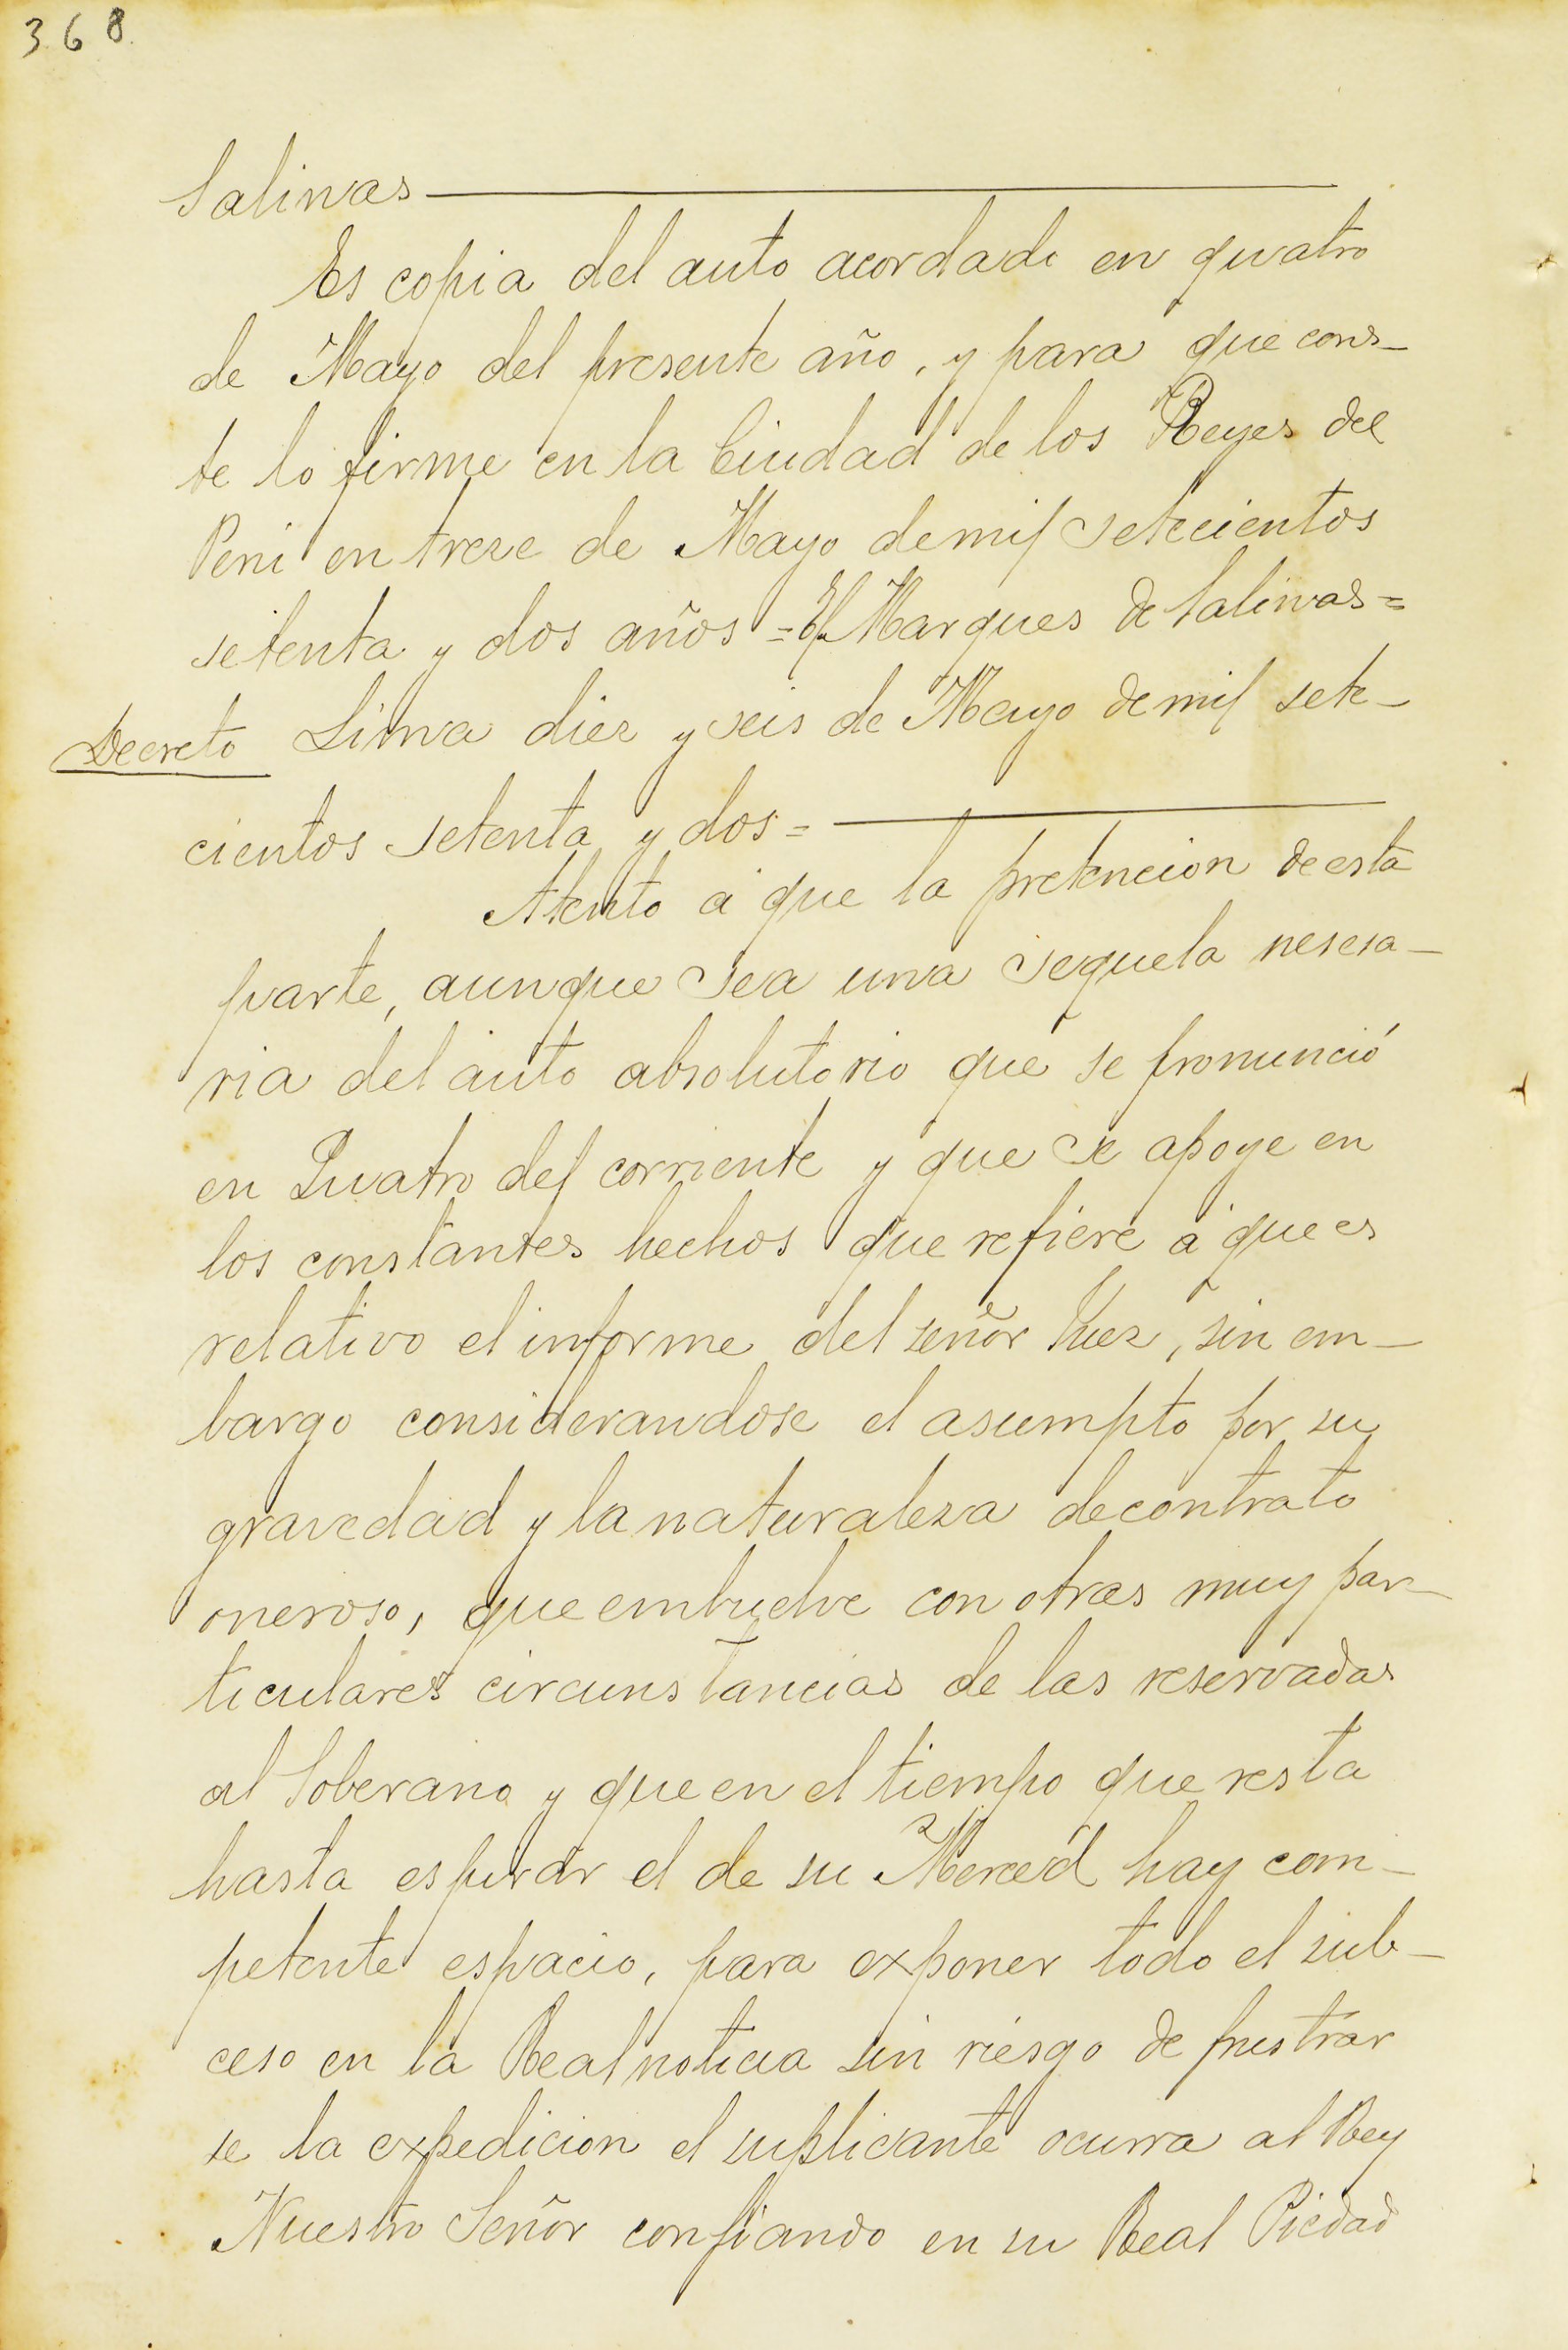 368
Salinas
Es copia del auto acordado en quatro
de Mayo del presente año, y para que cons-
te lo firme en la Ciudad de los Reyes del
Perú en trese de Mayo de mil setecientos
setenta y dos años = El Marques de Salinas =
Decreto Lima diez y seis de Mayo de mil sete-
cientos setenta y dos =
Atento á que la pretencion de esta
parte, aunque sea una sequela nesesa-
ria del auto absolutorio que se pronunció
en Quatro del corriente y que se apoye en
los constantes hechos que refiere á que es
relativo el informe del señor Juez, sin em-
bargo considerandose el asumpto por su
gravedad y la naturaleza de contrato
oneroso, que embuelve con otras muy par-
ticulares circunstancias de las reservadas
al Soberano y que en el tiempo que resta
hasta espirar el de su Merced hay com-
petente espacio, para exponer todo el sub-
ceso en la Real noticia sin riesgo de frustrar
se la expedicion el suplicante ocurra al Rey
Nuestro Señor confiando en su Real Piedad